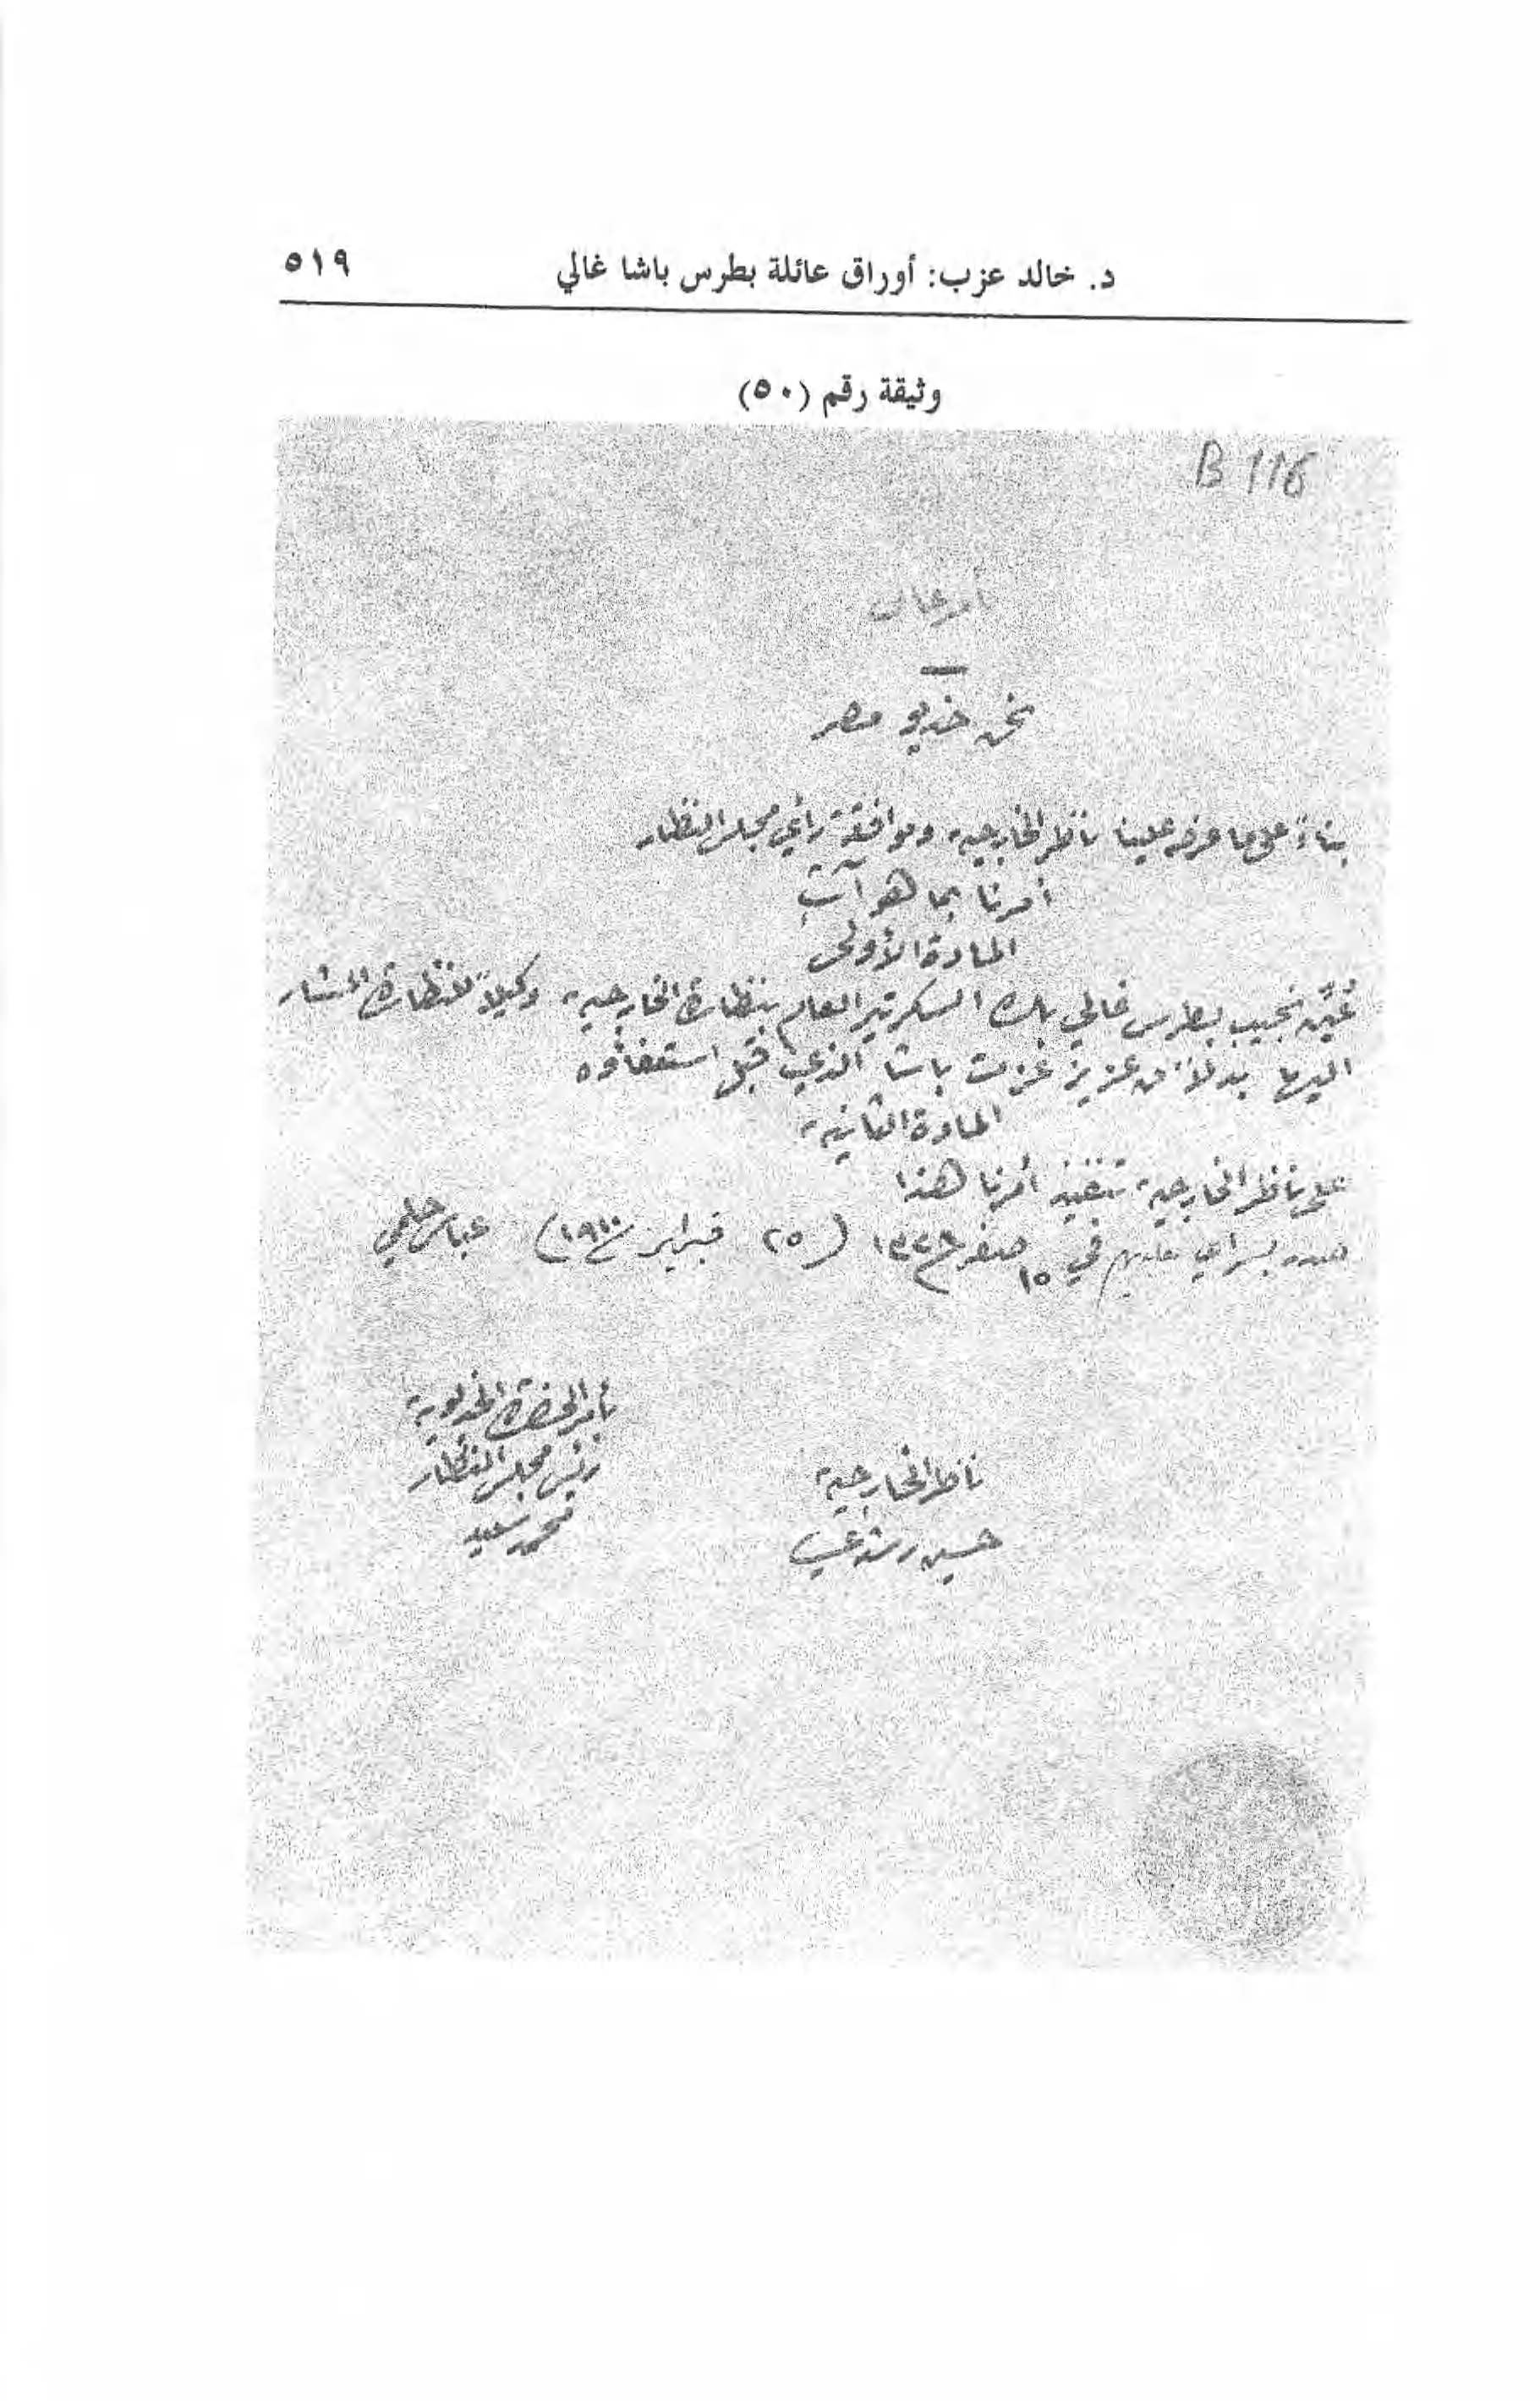 د. خالد عزب: أوراق عائلة بطرس باشا غالي ٥١٩
وثيقة رقم (٥٠)
B 116
أمر عال
نحن خديو مصر
بناءً على ما عرضه علينا ناظر الخارجية وموافقة رأي مجلس النظار
أمرنا بما هو آت
المادة الأولى
عُيِّن نجيب بطرس غالي بك السكرتير العام بنظارة الخارجية وكيلاً للنظارة المشار
اليها بدلاً من عزيز عزت باشا الذي قُبل استعفاؤه
المادة الثانية
على ناظر الخارجية تنفيذ أمرنا هذا
صدر بسراي عابدين في ١٥ صفر سنة ١٣٢٨ (٢٥ فبراير سنة ١٩١٠) عباس حلمي
بأمر الحضرة الخديوية
ناظر الخارجية رئيس مجلس النظار
حسين رشدي محمد سعيد